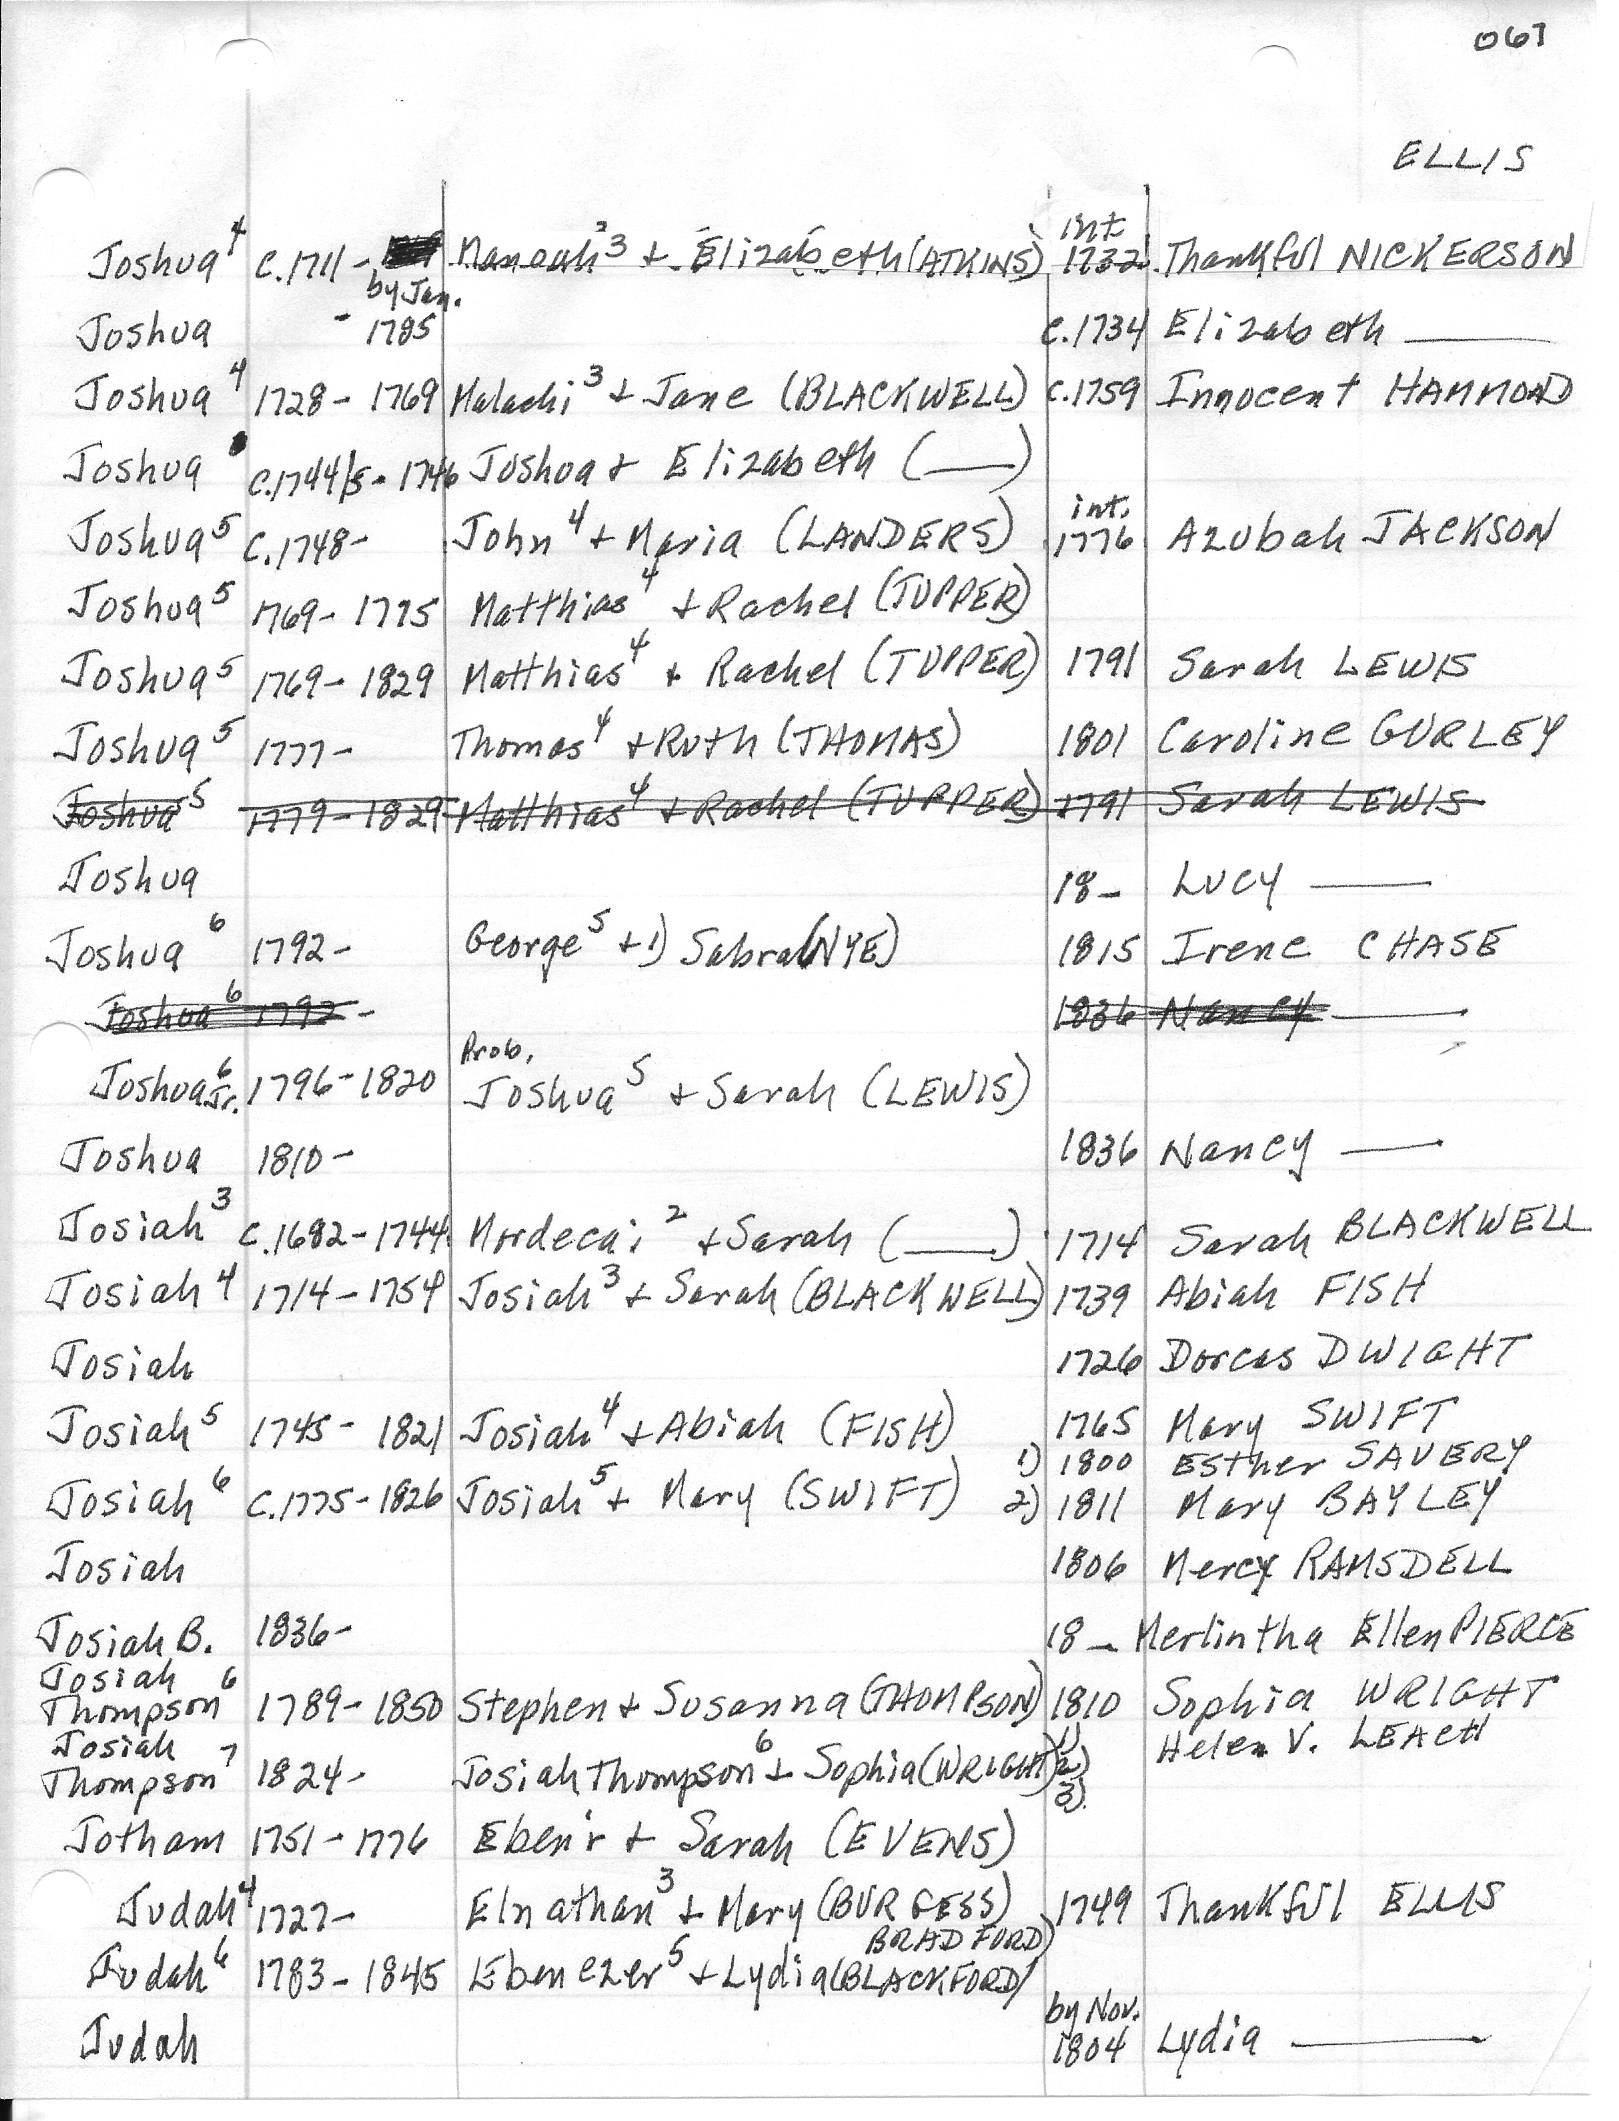 067
ELLIS
Joshua⁴ c.1711- by Jan. Manoah³ + Elizabeth (ATKINS) int. 1732 Thankful NICKERSON
Joshua - 1785 c.1734 Elizabeth ——
Joshua⁴ 1728- 1769 Malachi³ + Jane (BLACKWELL) c.1759 Innocent HAMMOND
Joshua c.1744/5- 1746 Joshua + Elizabeth (——)
Joshua⁵ c.1748- John⁴ + Maria (LANDERS) int. 1776 Azubah JACKSON
Joshua⁵ 1769- 1775 Matthias⁴ + Rachel (TUPPER)
Joshua⁵ 1769- 1829 Matthias⁴ + Rachel (TUPPER) 1791 Sarah LEWIS
Joshua⁵ 1777- Thomas⁴ + Ruth (THOMAS) 1801 Caroline GURLEY
Joshua⁵ 1779-1829 Matthias⁴ + Rachel (TUPPER) 1791 Sarah LEWIS
Joshua 18- Lucy ——
Joshua⁶ 1792- George⁵ + 1) Sabra (NYE) 1815 Irene CHASE
Joshua⁶ 1792- 1836 Nancy ——
Joshua⁶ Jr. 1796-1820 Prob. Joshua⁵ + Sarah (LEWIS)
Joshua 1810- 1836 Nancy ——
Josiah³ c.1682-1744 Mordecai² + Sarah (——) 1714 Sarah BLACKWELL
Josiah⁴ 1714-1754 Josiah³ + Sarah (BLACKWELL) 1739 Abiah FISH
Josiah 1726 Dorcas DWIGHT
Josiah⁵ 1745- 1821 Josiah⁴ + Abiah (FISH) 1765 Mary SWIFT
1) 1800 Esther SAVERY
Josiah⁶ c.1775-1826 Josiah⁵ + Mary (SWIFT) 2) 1811 Mary BAYLEY
Josiah 1806 Mercy RAMSDELL
Josiah B. 1836- 18- Merlintha Ellen PIERCE
Josiah
Thompson⁶ 1789-1850 Stephen + Susanna (THOMPSON) 1810 Sophia WRIGHT
Josiah 1) Helen V. LEACH
Thompson⁷ 1824- Josiah Thompson⁶ + Sophia (WRIGHT) 2)
3)
Jotham 1751-1776 Eben'r + Sarah (EVENS)
Judah⁴ 1727- Elnathan³ + Mary (BURGESS) 1749 Thankful ELLIS
BRADFORD)
Judah⁶ 1783-1845 Ebenezer⁵ + Lydia (BLACKFORD)
by Nov.
Judah 1804 Lydia ——